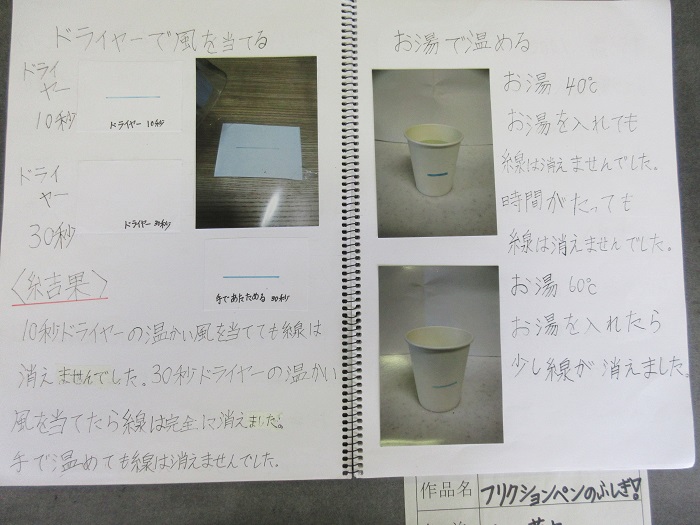 ドライヤーで風を当てる
ドライ
ヤー
10秒
ドライヤー 10秒
ドライ
ヤー
30秒
ドライヤー 30秒
〈結果〉
手であたためる 30秒
10秒ドライヤーの温かい風を当てても線は
消えませんでした。30秒ドライヤーの温かい
風を当てたら線は完全に消えました。
手で温めても線は消えませんでした。
お湯で温める
お湯 40℃
お湯を入れても
線は消えませんでした。
時間がたっても
線は消えませんでした。
お湯 60℃
お湯を入れたら
少し線が消えました。
作品名 フリクションペンのふしぎ!